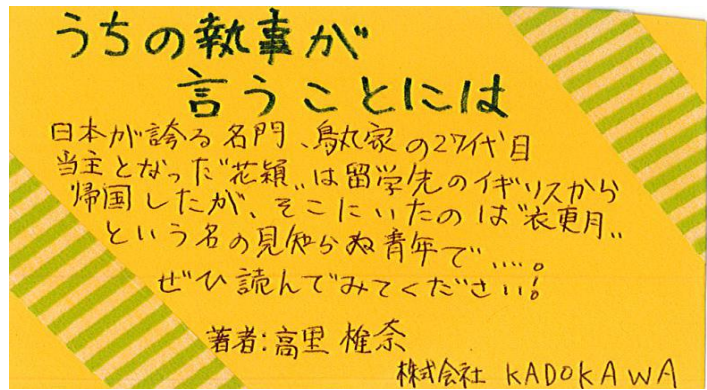 うちの執事が
言うことには
日本が誇る名門、烏丸家の27代目
当主となった"花穎"は留学先のイギリスから
帰国したが、そこにいたのは"衣更月"
という名の見知らぬ青年で……。
ぜひ読んでみてください!
著者:高里椎奈
株式会社 KADOKAWA